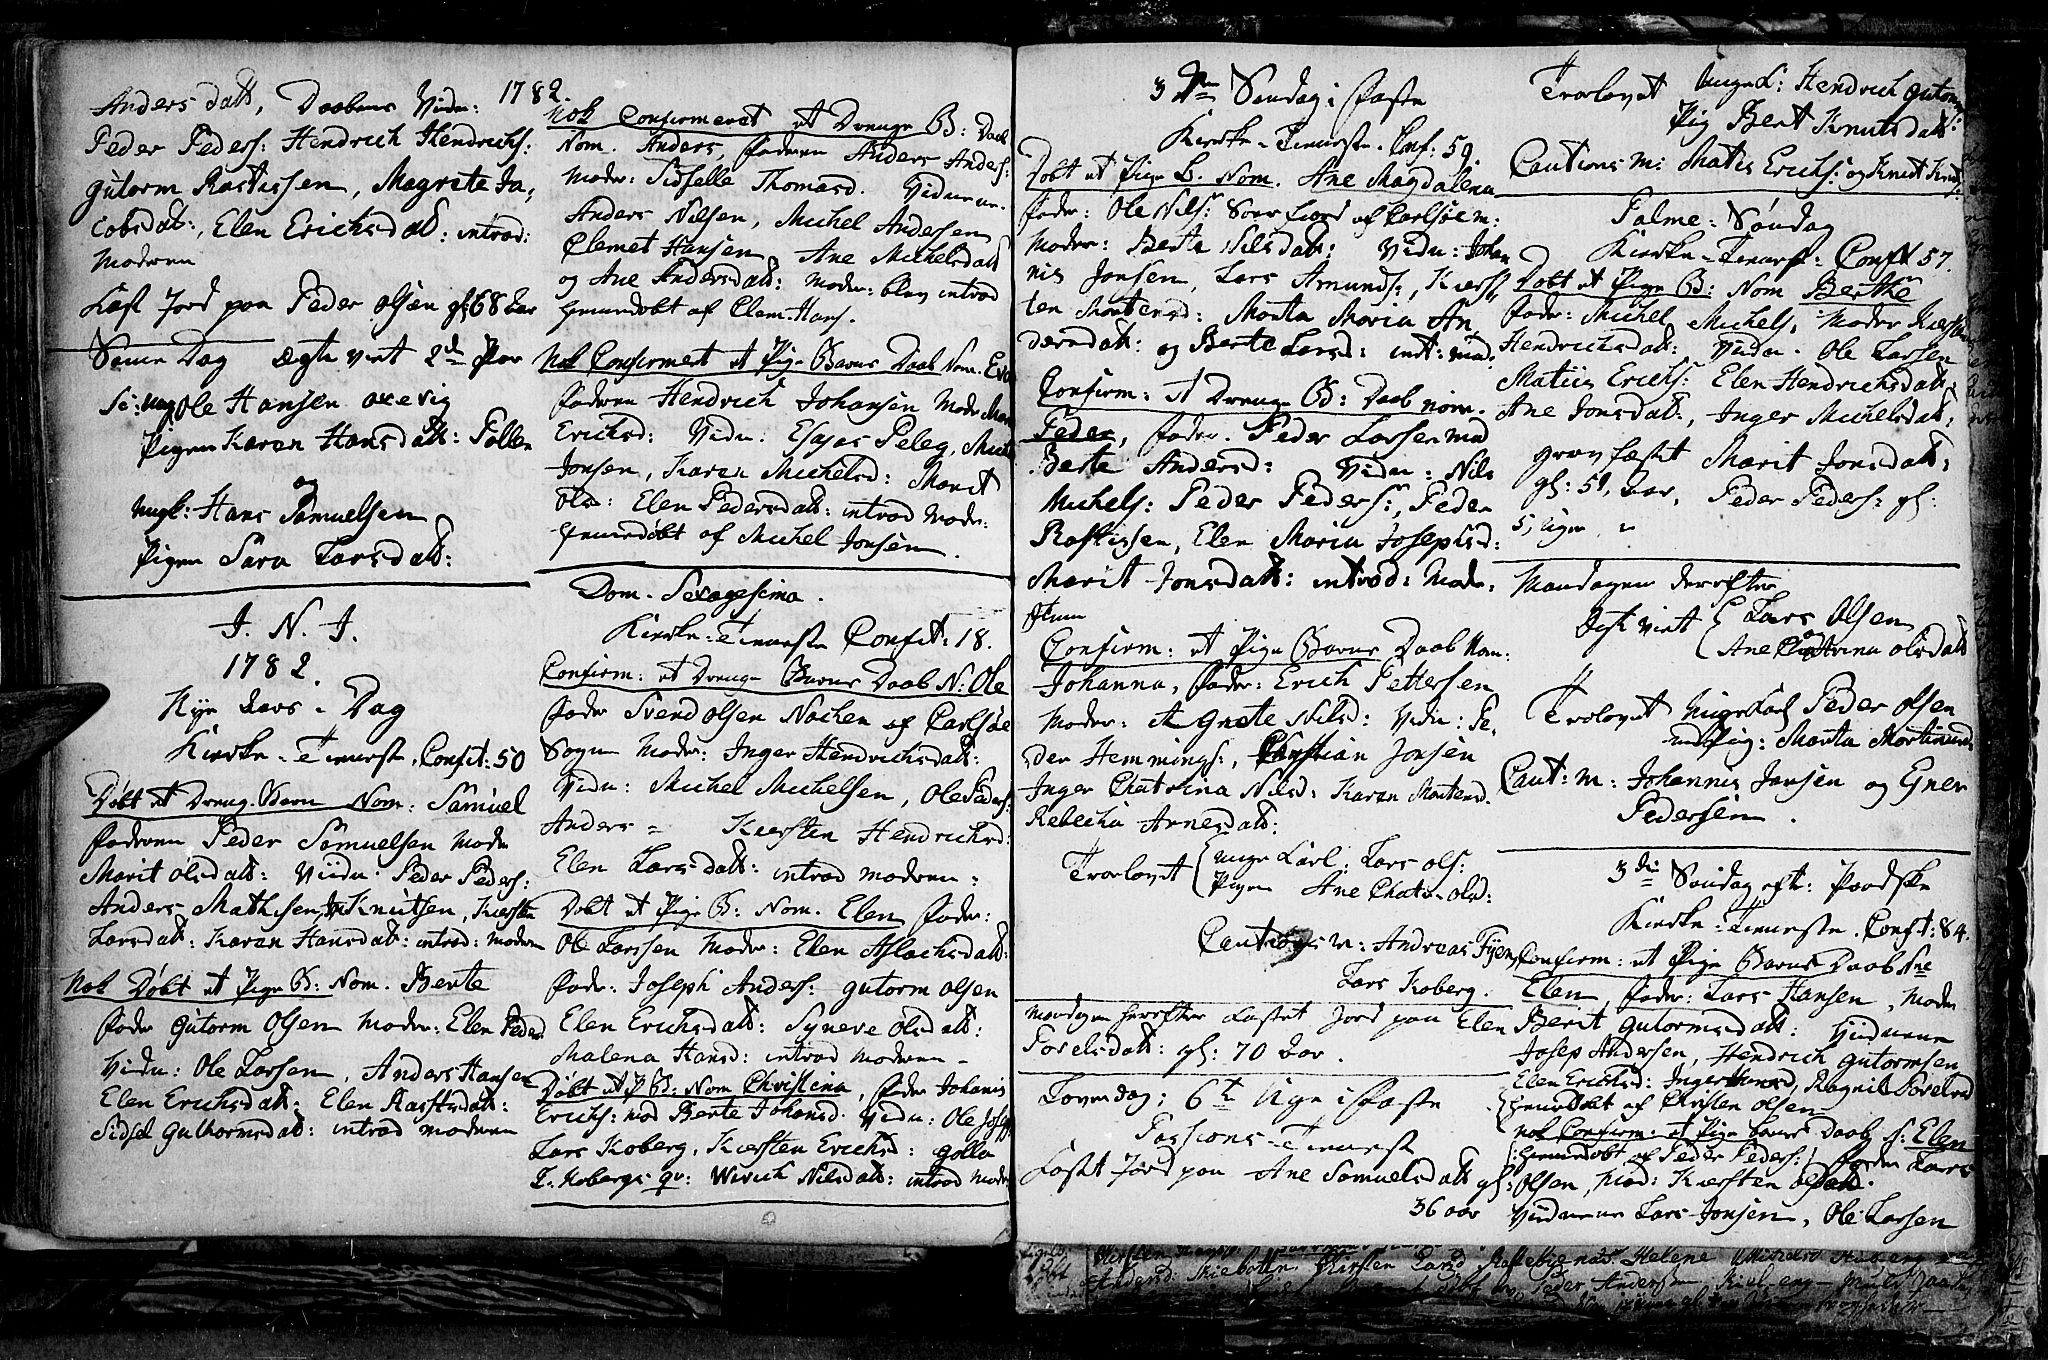 1782
Anders datt, Daabens Vidn:
Peder Peders: Hendrich Hendrichs:
gutorm Rastissen, Magrete Ja,
cobsdat:, Elen Erichsdat: introd:
Moderen
Kast Jord paa Peder olsen gl: 68 aar
Same Dag ægte viet 2de Par
ungk: Ole Hansen
Pigen Karen Hansdatt: Pollen
og
ungk: Hans Samuelsen
Pigen Sara Larsdat:
I. N. J.
1782.
Nye Aars Dag
Kirke-Tieneste, Confit: 50
Døbt et Dreng. Barn Nom: Samuel
faderen Peder Samuelsen Mode
Marit olsdatt: Vidn: Peder Peders:
Anders Mathisen, Knutsen, Kiersten
Larsdatt: Karen Hansdat: introd: modren
Nok Døbt et Pige B: Nom. Berte
fader gutorm Olsen Moder: Elen Peders
Vidn: Ole Larsen, Anders Hansen
Elen Erichsdatt: Elen Rastisdatt:
Sidsel Guthormsdat: introd moderen
Nok Confirmeret et Drenge B: Daab
Nom. Anders, faderen Anders Anders:
Moder: Sidselle Thomasd. Vidnerne.
Anders Nilsen, Michel Andersen
Clemet Hansen, Ane Michelsdatt
og Ane Andersdatt: moder: blev introd
hiemmedøbt af Clem. Hans.
Nok Confirmert et Pige Barns Daab Nom. Eva
faderen Hendrich Johansen Moder
Erichsd: Vidn: Esajas Peleg, Michel
Jonsen, Karen Michelsd: Marit
Olsd: Elen Pedersdatt: introd Moder:
hiemmedøbt af Michel Jonsen.
Dom. Sexagesima.
Kirke-Tieneste Confit: 18.
Confirm: et Drenge Barns Daab N: Ole
fader Svend olsen Nochen af Carlsøe
Sogn Moder: Inger Hendrichsdatt:
Vidn: Michel Michelsen, Ole Peders:
Anders = Kiersten Hendrichsd:
Elen Larsdatt: introd moderen:
Døbt et Pige B: Nom. Elen fader:
Ole Larssen Moder: Elen Aslachsdatt:
fadr: Joseph Anders: gutorm olsen
Elen Erichsdatt: Syneve olsdatt:
Malena Hansd: introd moderen -
Døbt et P B: Nom Christina, fader Johanis
Erichs: mod Berte Johansd. Vidn: Ole Joseph:
Lars Koberg, Kiersten Erichsd: golla
L. Kobergs qv: Wivich Nilsdatt: introd Moder
3die Søndag i Faste
Kirke-Tieneste. Conf: 59.
Døbt et Pige B. Nom. Ane Magdalena
fader: Ole Nils: af Carlsøe m:
Moder: Berte Nilsdatt: Vidn: Johan
nis Jonsen, Lars Amunds:, Kierst,
ten Mortensd: Marta Maria An,
dersdatt: og Berte Larsd: int: mod:
Confirm: et Drenge B: Daab nom.
Peder, fader. Peder Larsen mod
Berte Andersd: Vidn: Nils
Michels: Peder Peders:, Peder
Rastissen, Elen Maria Josephsd:
Marit Jonsdatt: introd: Moder.
Item
Confirm: et Pige Barns Daab Nom:
Johanna, fader: Erich Pettersen
Moder: Agnete Nilsd: Vidn: Pe,
der Hemmings:, Christian Jonsen
Inger Chatrina Nilsd: Karen Mortensd.
Rebecka Arnesdatt:
Trolovet unge Karl: Lars ols:
Pigen Ane Chatr: olsd:
Cautions m: Andreas Fyen,
Lars Koberg.
Mandagen herefter Kastet Jord paa Elen
Torelsdatt: gl: 70 Aar.
Løverdag: 6te Uge i Faste
Passions-Tieneste
Kastet Jord paa Ane Samuelsdatt gl:
36 aar
Trolovet Ungek: Hendrich gutorms:
Pig Berit Knutsdatt:
Cautions m: Matis Erichs: og Knut Knuts:
Palme: Søndag
Kirke-Tienest: Confit 57.
Døbt et Pige B: Nom Berthe
fader: Michel Michels, Moder Kiersten
Hendrichsdatt: Vidn. Ole Larsen
Matiis Erichs: Elen Hendrichsdatt:
Ane Jonsdatt:, Inger Michelsdatt,
grav fæstet Marit Jonsdatt:
gl: 59, Aar, Peder Peders: gl:
5, Uger
Mandagen derefter
Egte viet Lars Olsen
og
Ane Chatrina olsdatt
Trolovet Ungekarl Peder olsen
med Pig: Marta Mortinusd
Caut: m: Johannis Jansen og Ener
Pedersen.
3die Søndag eft: Paaske
Kirke-Tieneste. Confit: 84.
Confirm: et Pige Barns Daab Nne
Elen, fader: Lars Hansen, Moder
Berit gutormsdatt: Vidnerne
Josep Andersen, Hendrich gutormsen
Elen Erichsd: Inger Hansd, Ragnil Torelsd
hiemmedøbt af Christen olsen
nok Confirm: et Pige barns Daab N: Elen
hiemmedøbt af Peder Peders: fader Lars
Olsen, Mod: Kiersten olsdatt.
Vidnerne Lars Jonsen, Ole Larsen